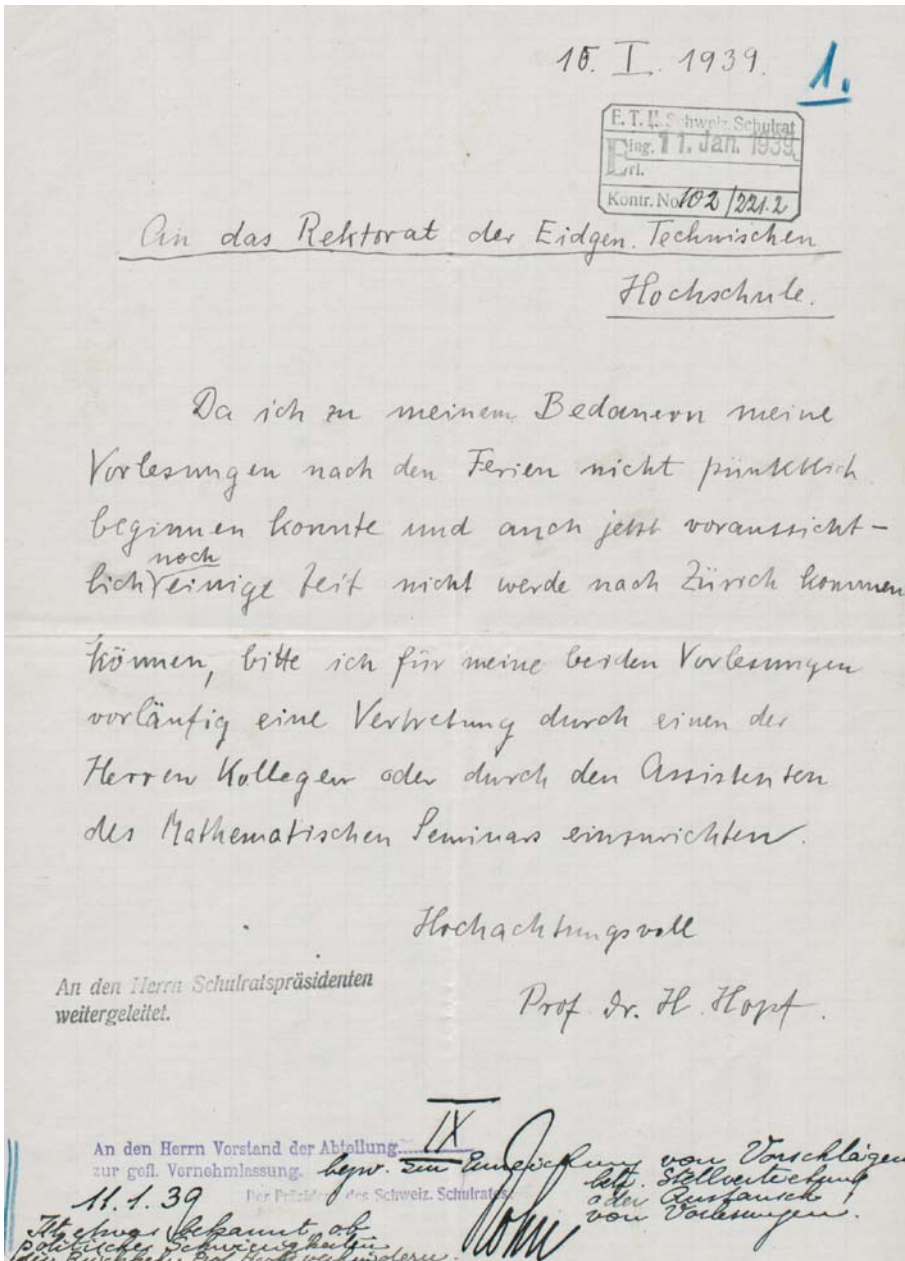 10. I. 1939.
1.
E. T. H. Schweiz. Schulrat
Eing. 11. Jan. 1939
Erl.
Kontr. No 102/221.2
An das Rektorat der Eidgen. Technischen
Hochschule.
Da ich zu meinem Bedauern meine
Vorlesungen nach den Ferien nicht pünktlich
beginnen konnte und auch jetzt voraussicht-
lich noch einige Zeit nicht werde nach Zürich kommen
können, bitte ich für meine beiden Vorlesungen
vorläufig eine Vertretung durch einen der
Herren Kollegen oder durch den Assistenten
des Mathematischen Seminars einzurichten.
Hochachtungsvoll
Prof. Dr. H. Hopf.
An den Herrn Schulratspräsidenten
weitergeleitet.
An den Herrn Vorstand der Abteilung IX
zur gefl. Vernehmlassung. bezw. zur Einreichung von Vorschlägen
betr. Stellvertretung
oder Austausch
von Vorlesungen.
Der Präsident des Schweiz. Schulrates:
Rohn
11.1.39
Ist etwas bekannt, ob
politische Schwierigkeiten
die Rückkehr Prof. Hopfs verhindern.